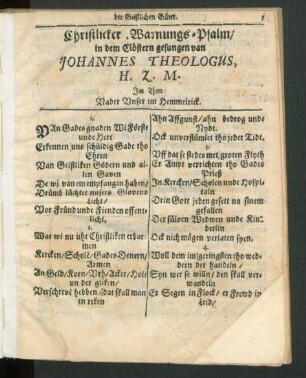 der Geistlichen Güter.
Christlicker Warnungs-Psalm/
in dem Clöstern gesungen van
JOHANNES THEOLOGUS,
H. Z. M.
Im Thon:
Vader Unser im Hemmelrick.
1.
VAn Gades gnaden Wi Förste
unde Here
Erkennen uns schüldig Gade tho
Ehren
Van Geistliken Gödern und al-
len Gaven
De wi van em empfangen haben/
Vor Fründ unde Fienden offent-
licht.
2.
War wi nu üht Christliken erbar-
men
Kercken/Schole/Gades-Denern/
Armen
An Geld/Korn/Veh/Acker/Holt
un der gliken/
Verschreve hebben/dat skall man
in reken
Ahn Affgunst/ahn bedrog unde
Nydt.
Ock unverstümlet tho jeder Tidt.
3.
Uff dat se stedes met groten Flyth
Er Ampt verrichten tho Gades
Prieß
In Kercken/Scholen unde Hospi-
talen
Drin Gott jeden gesett na sinem
gefallen
Der sülven Wedwen unde Kin-
derlin
Ock nich mögen verlaten syen.
4.
Woll dem im geringsten tho wed-
dern det handeln/
Syn wer se willn/den skall ver-
wandeln
Er Segen in Flock/er Frewd in
Leid/